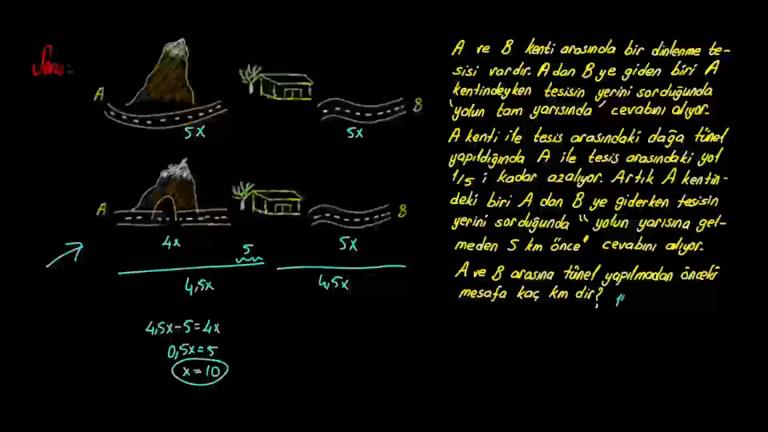 Soru:
A ve B kenti arasında bir dinlenme te-
sisi vardır. A dan B ye giden biri A
kentindeyken tesisin yerini sorduğunda
"yolun tam yarısında" cevabını alıyor.
A kenti ile tesis arasındaki dağa tünel
yapıldığında A ile tesis arasındaki yol
1/5 i kadar azalıyor. Artık A kentin-
deki biri A dan B ye giderken tesisin
yerini sorduğunda "yolun yarısına gel-
meden 5 km önce" cevabını alıyor.
A ve B arasına tünel yapılmadan önceki
mesafa kaç km dir?
A
B
5x
5x
A
B
4x
5
5x
4,5x
4,5x
4,5x-5=4x
0,5x=5
x=10